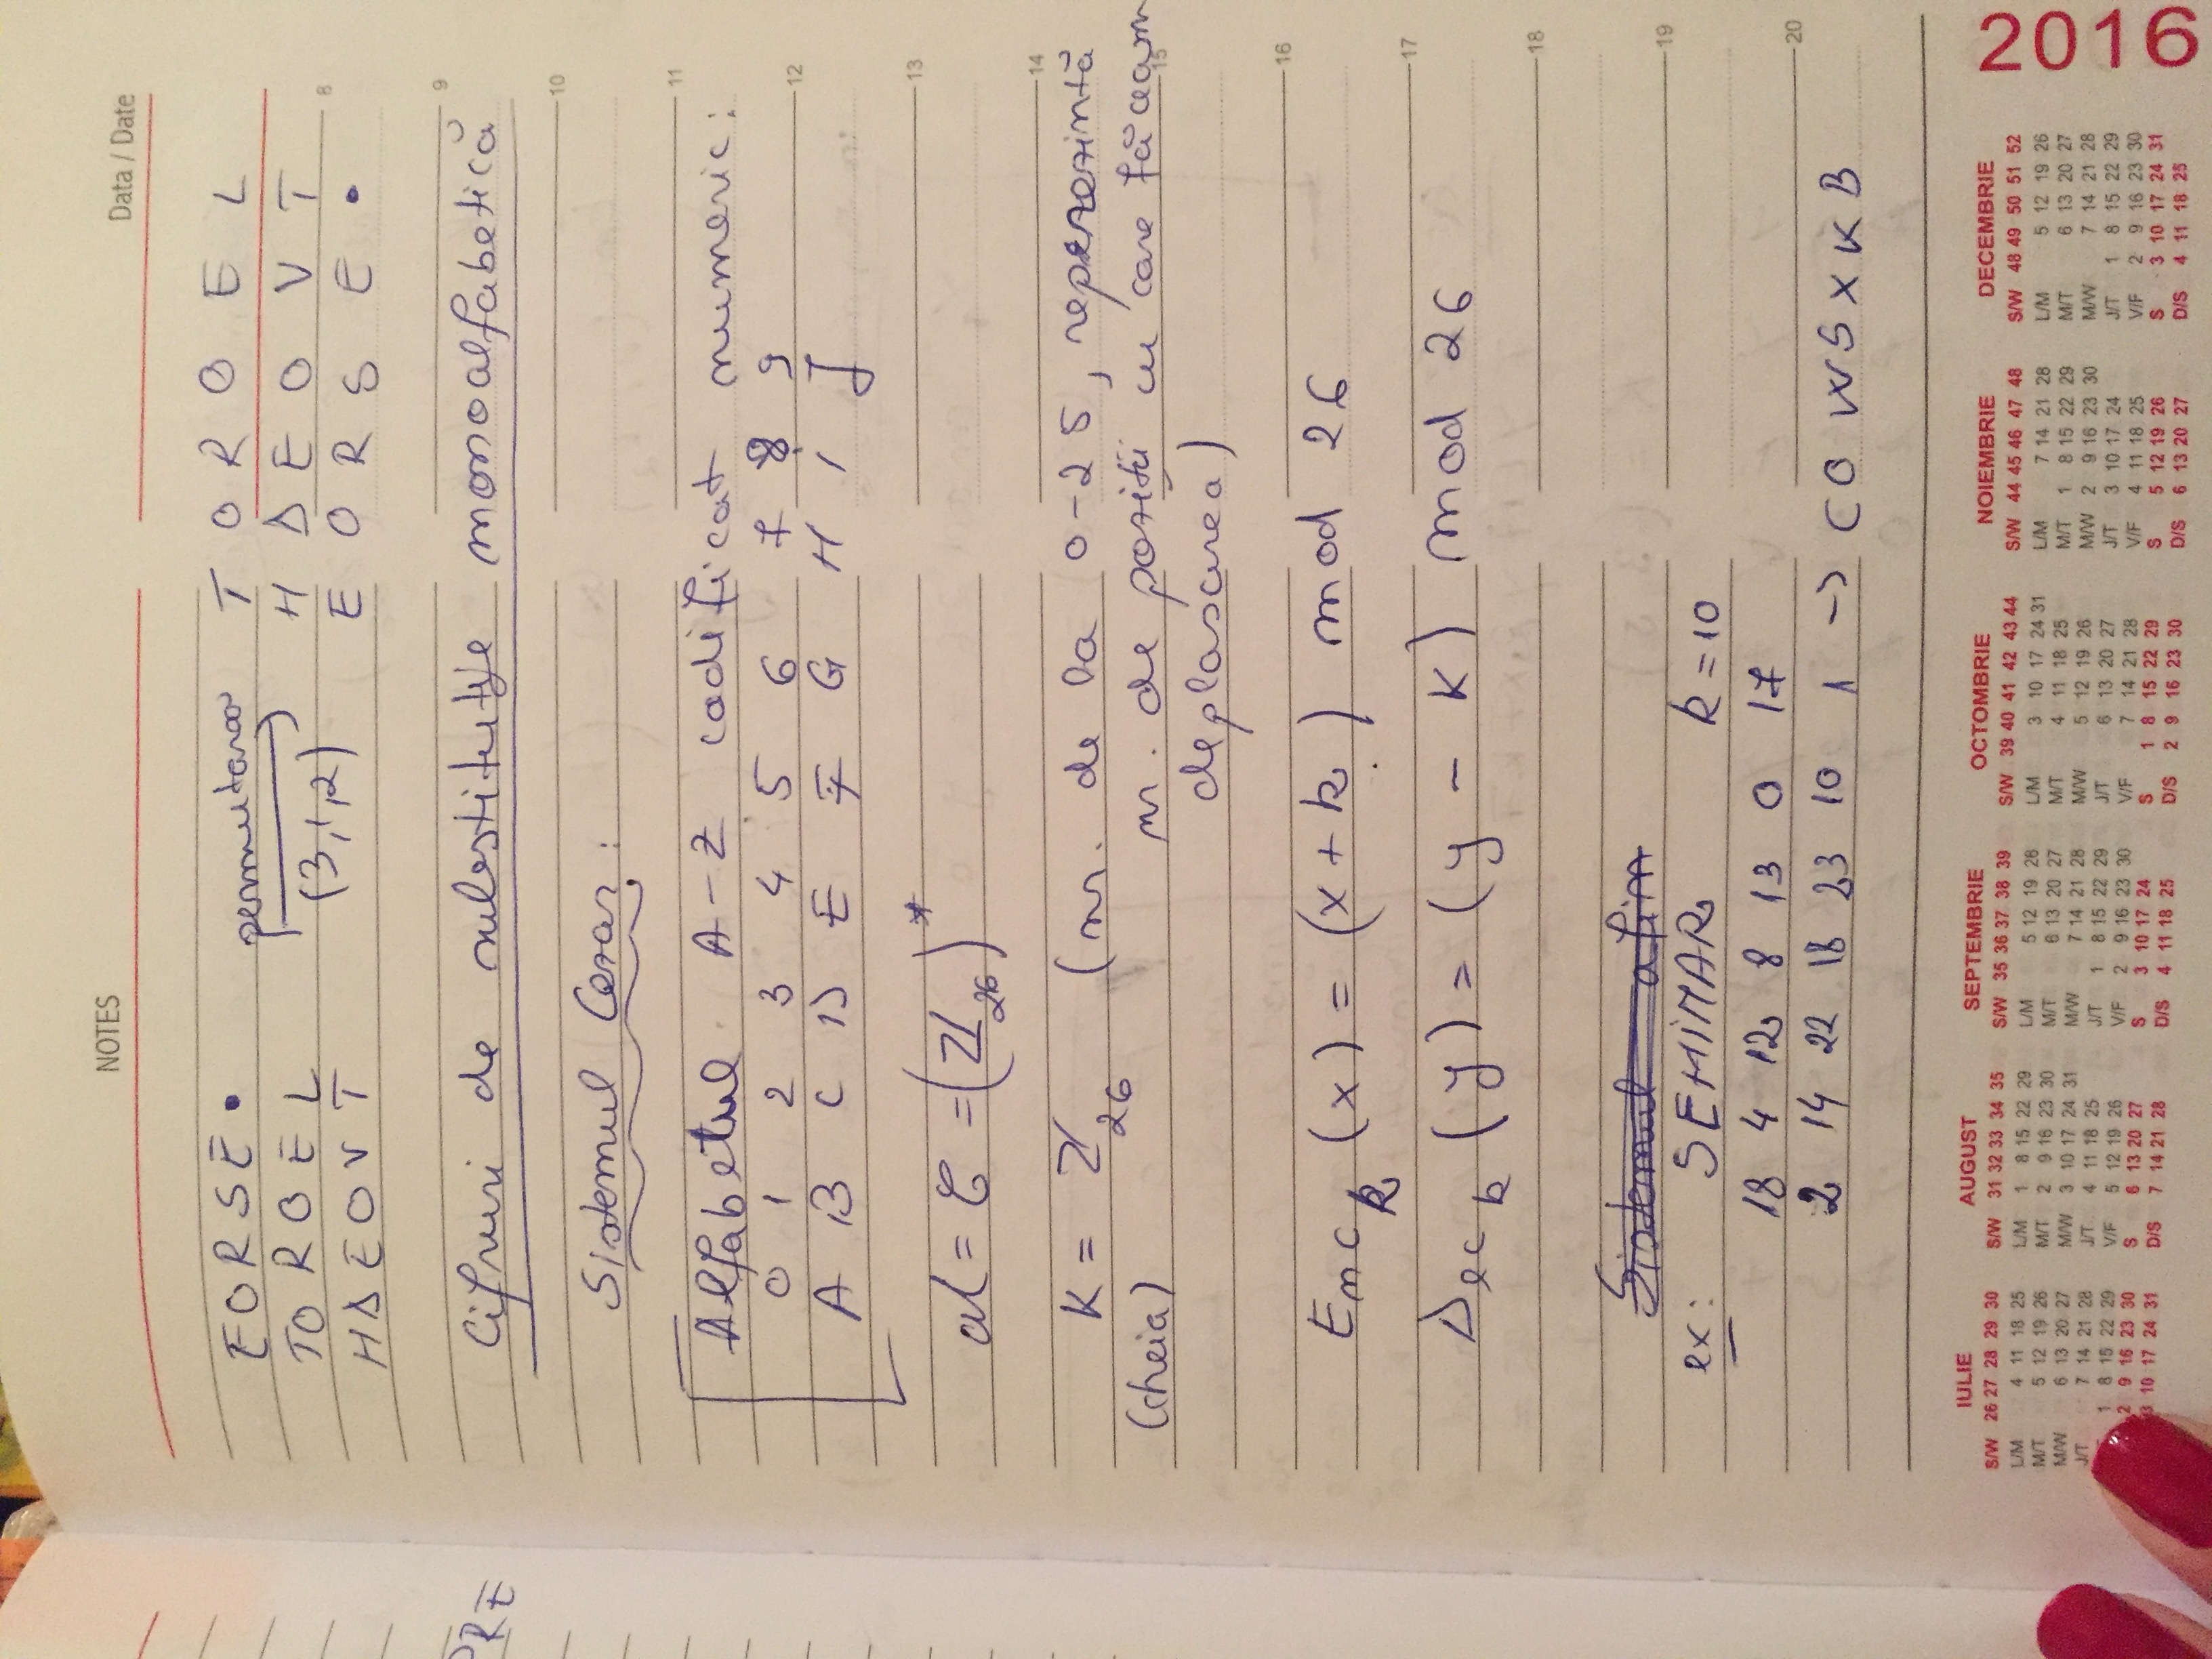 NOTES
Data / Date
EORSE• permutarea TOROEL
TOROEL (3,1,2) HDEOVT
HDEOVT EORSE•
8
9
RE
Cifruri de substituție monoalfabetică
10
Sistemul Cezar:
11
Alfabetul A-Z codificat numeric:
0 1 2 3 4 5 6 7 8 9
12
A B C D E F G H I J
13
M = C = (Z26)*
14
K = Z26 (nr. de la 0-25, reprezezintă
(cheia) nr. de poziții cu care făceam
15
deplasarea)
16
Enc k (x) = (x + k) mod 26
17
Dec k (y) = (y - K) mod 26
18
Sistemul afin
19
ex: SEMINAR k = 10
18 4 12 8 13 0 17
20
2 14 22 18 23 10 1 → CO WSXKB
IULIE
S/W 26 27 28 29 30
L/M 4 11 18 25
M/T 5 12 19 26
M/W 6 13 20 27
J/T 7 14 21 28
1 8 15 22 29
2 9 16 23 30
3 10 17 24 31
AUGUST
S/W 31 32 33 34 35
L/M 1 8 15 22 29
M/T 2 9 16 23 30
M/W 3 10 17 24 31
J/T 4 11 18 25
V/F 5 12 19 26
S 6 13 20 27
D/S 7 14 21 28
SEPTEMBRIE
S/W 35 36 37 38 39
L/M 5 12 19 26
M/T 6 13 20 27
M/W 7 14 21 28
J/T 1 8 15 22 29
V/F 2 9 16 23 30
S 3 10 17 24
D/S 4 11 18 25
OCTOMBRIE
S/W 39 40 41 42 43 44
L/M 3 10 17 24 31
M/T 4 11 18 25
M/W 5 12 19 26
J/T 6 13 20 27
V/F 7 14 21 28
S 1 8 15 22 29
D/S 2 9 16 23 30
NOIEMBRIE
S/W 44 45 46 47 48
L/M 7 14 21 28
M/T 1 8 15 22 29
M/W 2 9 16 23 30
J/T 3 10 17 24
V/F 4 11 18 25
S 5 12 19 26
D/S 6 13 20 27
DECEMBRIE
S/W 48 49 50 51 52
L/M 5 12 19 26
M/T 6 13 20 27
M/W 7 14 21 28
J/T 1 8 15 22 29
V/F 2 9 16 23 30
S 3 10 17 24 31
D/S 4 11 18 25
2016